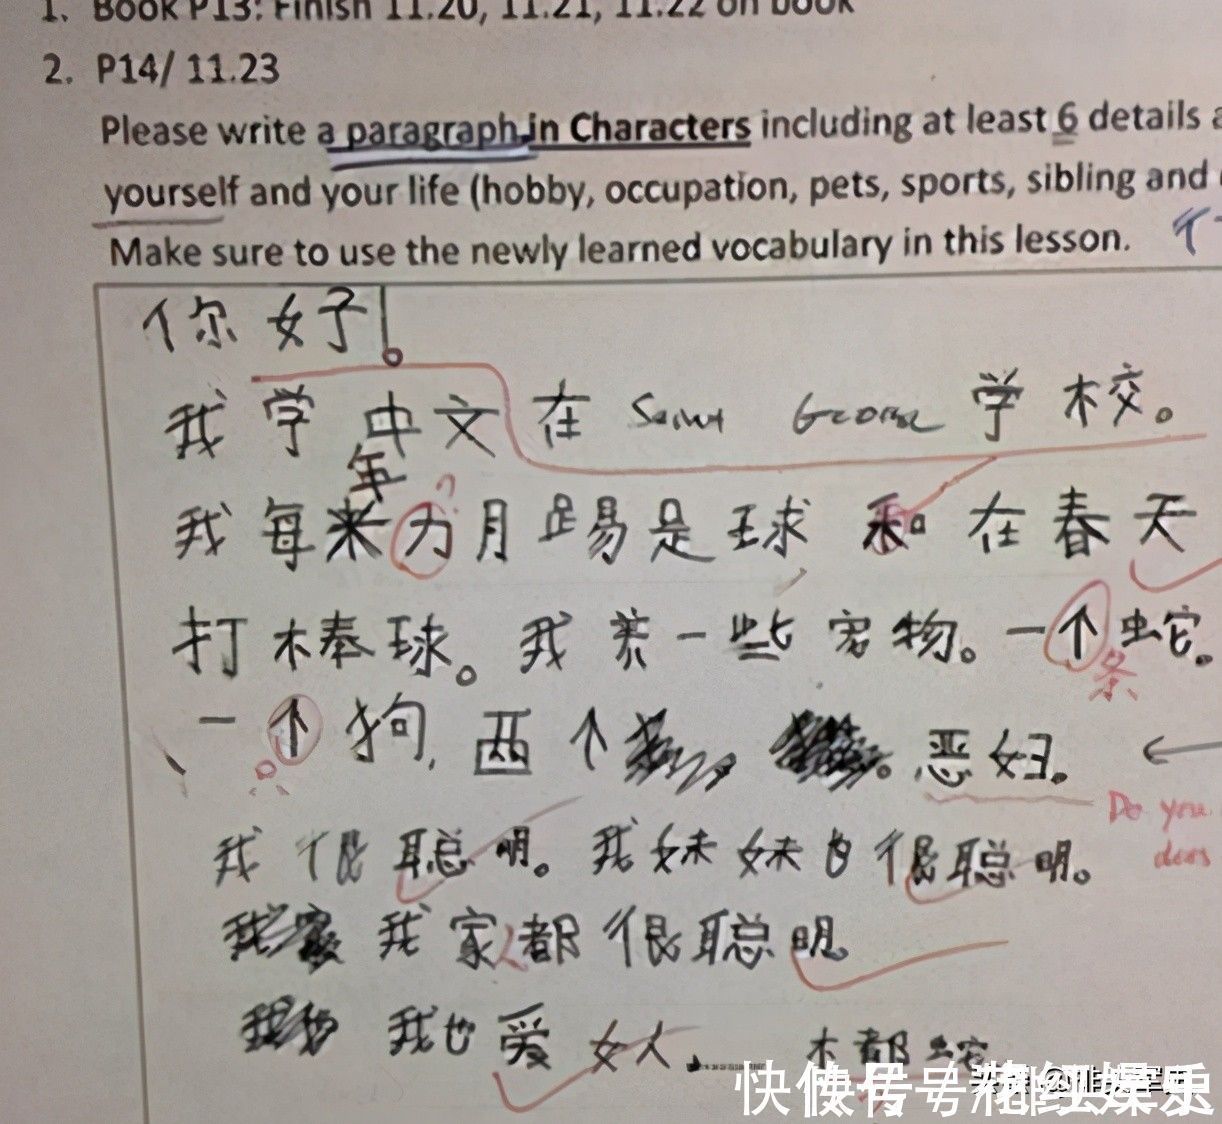 1. Book P13: Finish 11.20, 11.21, 11.22 on book
2. P14/ 11.23
Please write a paragraph in Characters including at least 6 details
yourself and your life (hobby, occupation, pets, sports, sibling and
Make sure to use the newly learned vocabulary in this lesson. 个
你好!
我学中文在 Saint George 学校。
年
我每来力月踢是球和在春天
?
打棒球。我养一些宠物。一个蛇。
条
一个狗,两个
恶妇。
Do you
我很聪明。我妹妹也很聪明。
我家人都很聪明。
我也爱女人
都蛇
快传号/